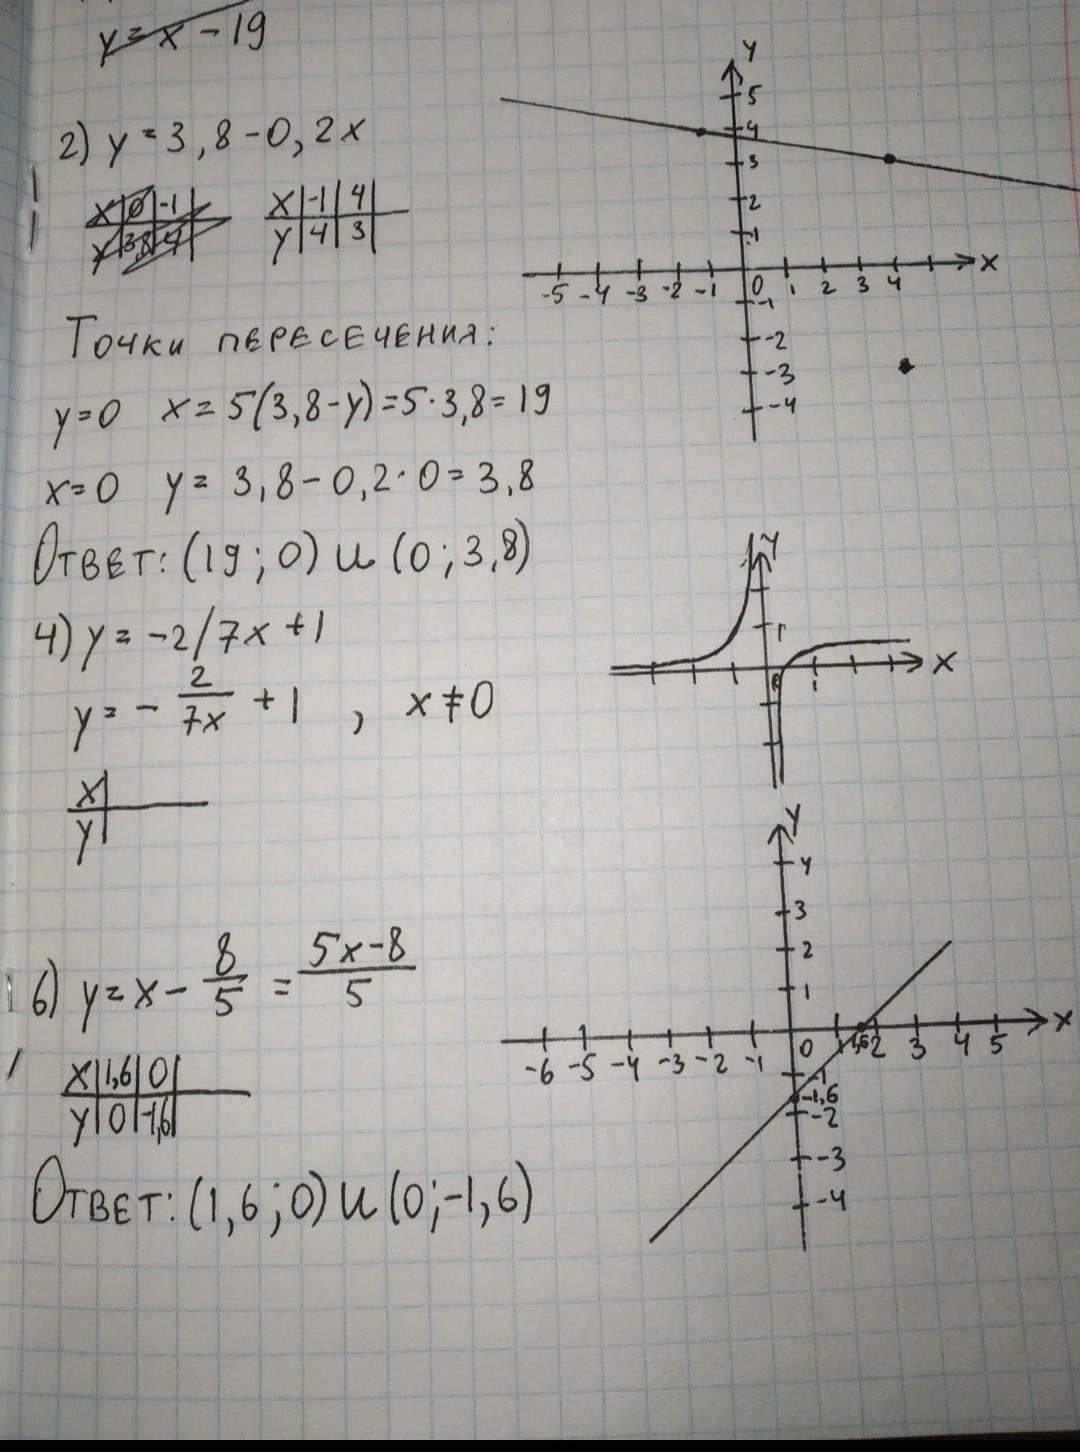 y = x - 19
2) y = 3,8 - 0,2x
x | 0 | -1
y | 3,8 | 4
x | -1 | 4
y | 4 | 3
y
5
4
3
2
1
-5 -4 -3 -2 -1 0 1 2 3 4 x
-1
-2
-3
-4
Точки пересечения:
y=0 x = 5(3,8-y) = 5·3,8 = 19
x=0 y = 3,8 - 0,2·0 = 3,8
Ответ: (19; 0) и (0; 3,8)
4) y = -2/7x + 1
y = - 2/7x + 1 , x ≠ 0
x
y
y
1
0 1 x
6) y = x - 8/5 = 5x-8/5
x | 1,6 | 0
y | 0 | -1,6
Ответ: (1,6; 0) и (0; -1,6)
y
4
3
2
1
-6 -5 -4 -3 -2 -1 0 1 1,6 2 3 4 5 x
-1
-1,6
-2
-3
-4